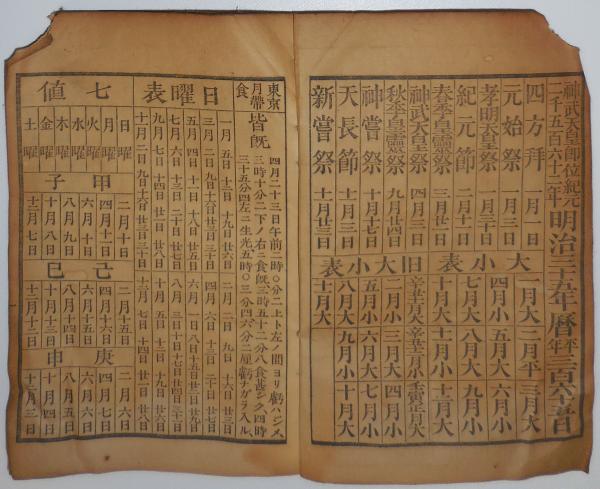 神武天皇即位紀元二千五百六十二年
明治三十五年暦
平年三百六十五日
四方拜 一月一日
元始祭 一月三日
孝明天皇祭 一月三十日
紀元節 二月十一日
春季皇靈祭 三月廿一日
神武天皇祭 四月三日
秋季皇靈祭 九月廿四日
神嘗祭 十月十七日
天長節 十一月三日
新嘗祭 十一月廿三日
大小表
一月大 二月平 三月大
四月小 五月大 六月小
七月大 八月大 九月小
十月大 十一月小 十二月大
旧大小表
辛丑十一月大 辛丑十二月小 壬寅正月大
二月小 三月大 四月小
五月小 六月大 七月小
八月大 九月小 十月大
十一月大
東京月帶食
皆既
四月二十三日午前二時〇分二上ト左ノ間ヨリ虧ハジメ、
三時十分二下ノ右ニ食既三時五十二分八食甚シク、四時
三十五分四左ニ生光、五時〇三分四六分二厘虧ナガラ入ル、
日曜表
一月 五日 十二日 十九日 廿六日
二月 二日 九日 十六日 廿三日
三月 二日 九日 十六日 廿三日 三十日
四月 六日 十三日 二十日 廿七日
五月 四日 十一日 十八日 廿五日
六月 一日 八日 十五日 廿二日 廿九日
七月 六日 十三日 二十日 廿七日
八月 三日 十日 十七日 廿四日 三十一日
九月 七日 十四日 廿一日 廿八日
十月 五日 十二日 十九日 廿六日
十一月 二日 九日 十六日 廿三日 三十日
十二月 七日 十四日 廿一日 廿八日
七値
日曜
月曜
火曜
水曜
木曜
金曜
土曜
甲子
二月十日
四月十一日
六月十日
八月九日
十月八日
十二月七日
己巳
二月十五日
四月十六日
六月十五日
八月十四日
十月十三日
十二月十二日
庚申
二月六日
四月七日
六月六日
八月五日
十月四日
十二月三日